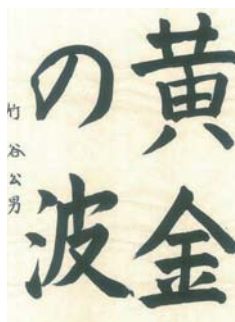 黄金
の波
竹谷公男